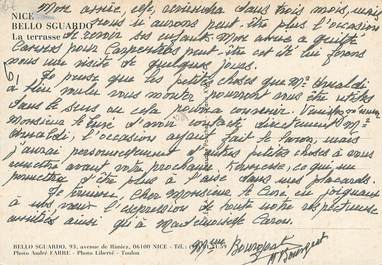 NICE
BELLO SGUARDO
La terrasse
Mon arrivée, elle, reviendra dans trois mois, mais
nous n'aurons peut être plus l'occasion
de revoir ses enfants. Mon a quitté
Cannes pour Carpentras peut être cet été lui ferons
nous une visite de quelques jours.
Je pense que les petites choses que Mr
a bien voulu vous monter pourront vous être utiles
dans le sens où cela pourra convenir.
Monsieur le Curé d'avoir contacté directement Mr
l'occasion ayant fait le
j'aurai personnellement d'autres petites choses à vous
remettre avant votre prochaine kermesse, ce qui me
permettra d'être plus à l'aise dans mes placards.
Je termine Cher Monsieur le Curé en joignant
à mes vœux l'expression de toute notre respectueuse
amitié ainsi qu'à Mademoiselle Caron.
BELLO SGUARDO, 93, avenue de Rimiez, 06100 NICE - Tél. :
Photo André FABRE - Photo Liberté - Toulon